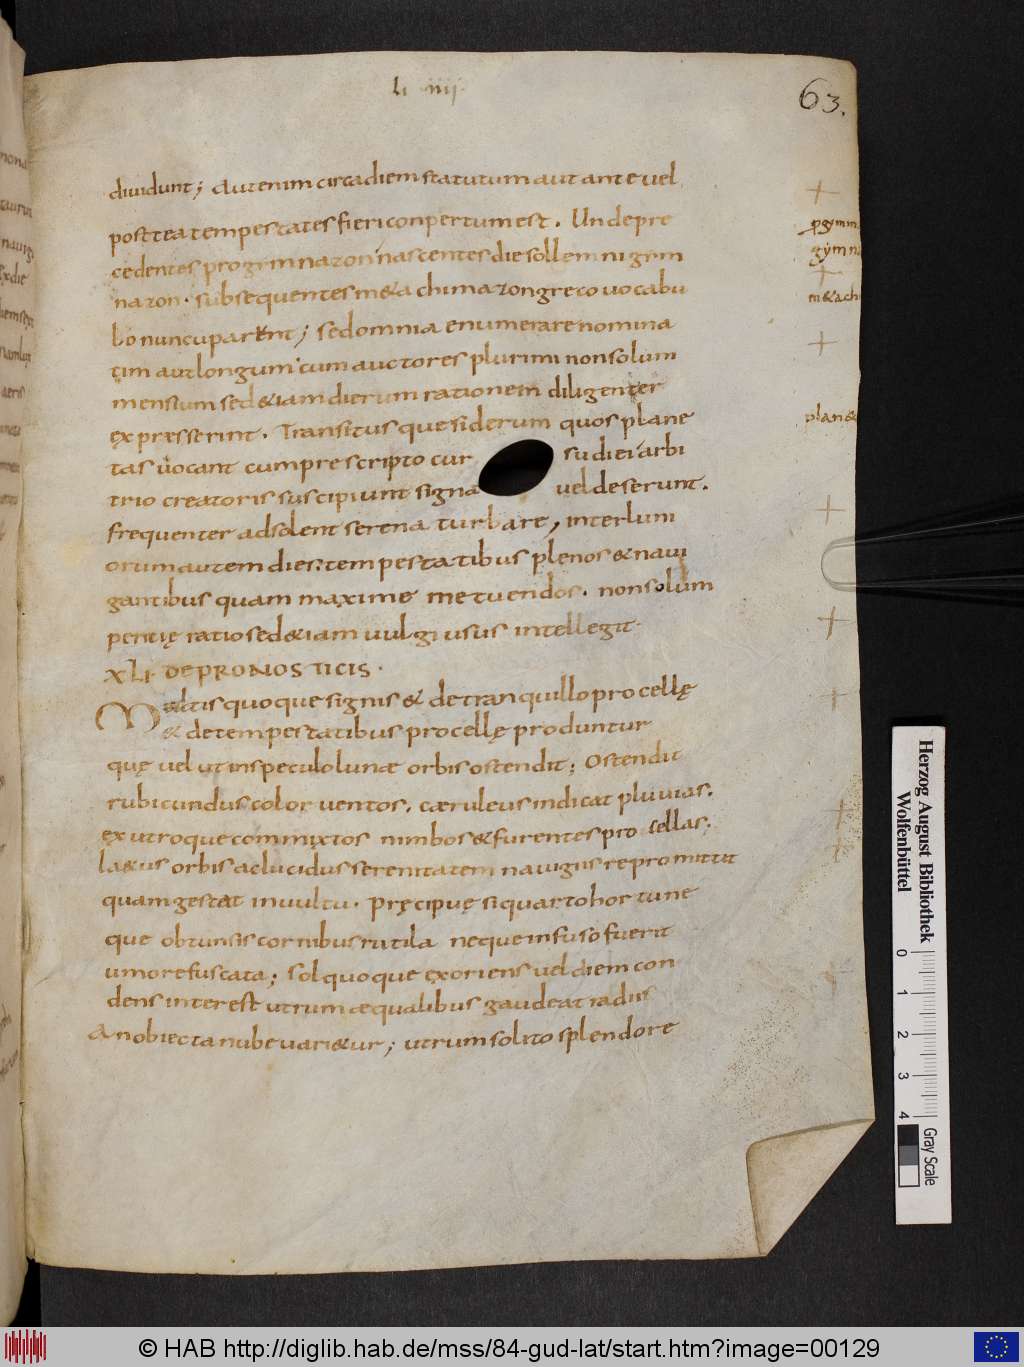 li · iiij ·
63.
diuidunt; Aut enim circa diem statutum aut ante uel
post tea tempestates fieri conpertum est. Unde pre
cedentes progimnazon nascentes die sollemni gim
nazon. subsequentes m&achimazon greco uocabu
lo nuncuparent; sed omnia enumerare nomina
tim aut longum cum auctores plurimi non solum
mensium sed &iam dierum rationem diligenter
expresserint. Transitus que siderum quos plane
tas uocant cum prescripto cur su diei arbi
trio creatoris suscipiunt signa uel deserunt.
frequenter adsolent serena turbare, interluni
orum autem dies tempestatibus plenos & naui
gantibus quam maxime metuendos. non solum
peritię ratio sed &iam uulgi usus intellegit.
XLI· DE PRONOSTICIS ·
Multis quoque signis & de tranquillo procellę
& de tempestatibus procellę produntur
quę uel ut in speculo lunae orbis ostendit; Ostendit
rubicundus color uentos. cæruleus indicat pluuias.
ex utroque commixtos nimbos & furentes pro sellas;
la&us orbis ac lucidus serenitatem nauigiis repromittit
quam gestat in uultu. Pręcipuę si quarto hortu ne
que obtunsis cornibus rutila neque infuso fuerit
umore fuscata; Sol quoque exoriens uel diem con
dens interest utrum æqualibus gaudeat radiis
An obiecta nube uari&ur; utrum solito splendore
pgymn
gymna
m&ach
plan&
Herzog August Bibliothek
Wolfenbüttel
0 1 2 3 4
Gray Scale
© HAB http://diglib.hab.de/mss/84-gud-lat/start.htm?image=00129